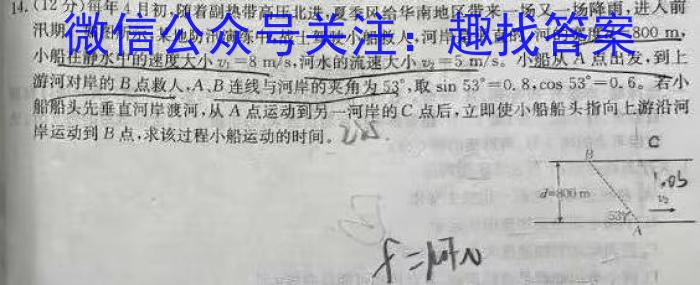 14.(12分)每年4月初,随着副热带高压北进,夏季风给华南地区带来一场又一场降雨,进入前
汛期
微信公众号关注：趣找答案
800 m,
小船在静水中的速度大小v₁=8 m/s,河水的流速大小v₂=5 m/s。小船从A点出发,到上
游河对岸的B点救人,A、B连线与河岸的夹角为53°,取 sin 53°=0.8,cos 53°=0.6。若小
船船头先垂直河岸渡河,从A点运动到另一河岸的C点后,立即使小船船头指向上游沿河
岸运动到B点,求该过程小船运动的时间。
B
C
d=800 m
1.05
v₂
53°
A